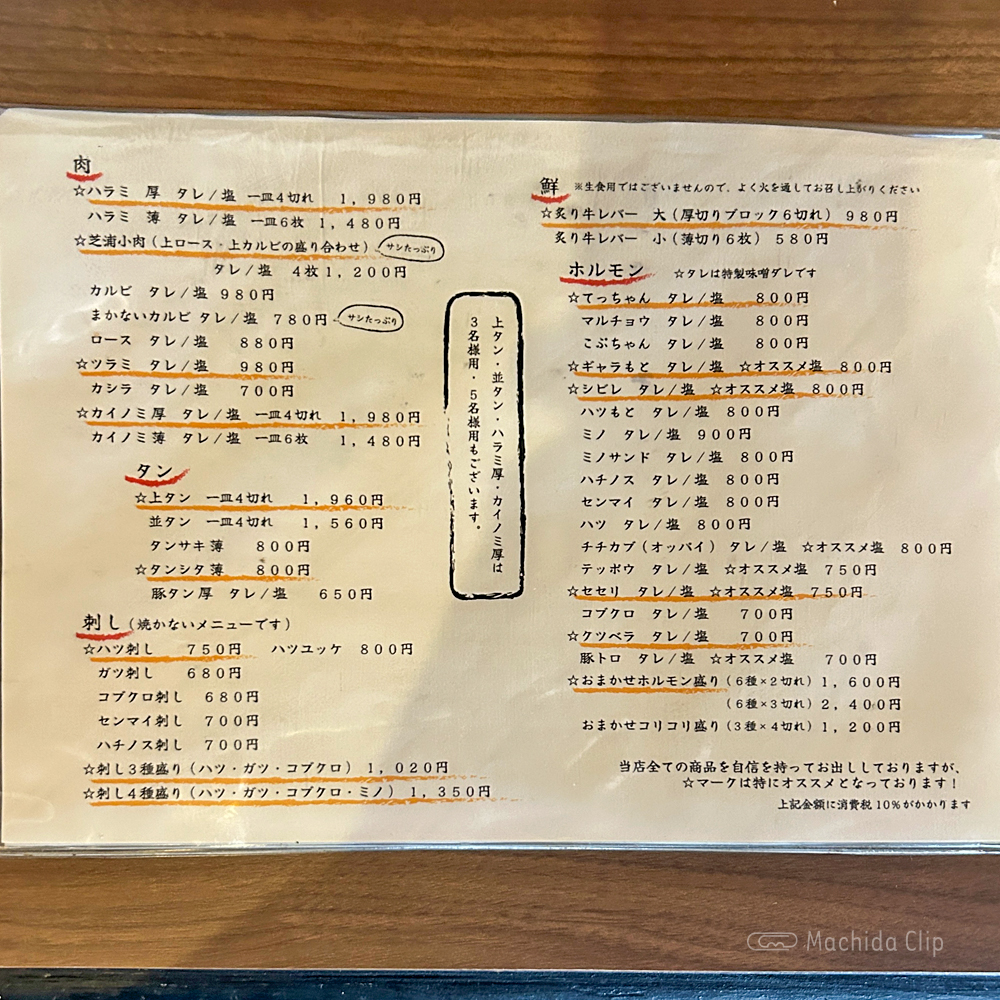 肉
☆ハラミ 厚 タレ/塩 一皿4切れ 1,980円
ハラミ 薄 タレ/塩 一皿6枚 1,480円
☆芝浦小肉(上ロース・上カルビの盛り合わせ) サシたっぷり
タレ/塩 4枚1,200円
カルビ タレ/塩 980円
まかないカルビ タレ/塩 780円 サシたっぷり
ロース タレ/塩 880円
☆ツラミ タレ/塩 980円
カシラ タレ/塩 700円
☆カイノミ厚 タレ/塩 一皿4切れ 1,980円
カイノミ薄 タレ/塩 一皿6枚 1,480円
タン
☆上タン 一皿4切れ 1,960円
並タン 一皿4切れ 1,560円
タンサキ薄 800円
☆タンシタ薄 800円
豚タン厚 タレ/塩 650円
刺し(焼かないメニューです)
☆ハツ刺し 750円 ハツユッケ 800円
ガツ刺し 680円
コブクロ刺し 680円
センマイ刺し 700円
ハチノス刺し 700円
☆刺し3種盛り(ハツ・ガツ・コブクロ) 1,020円
☆刺し4種盛り(ハツ・ガツ・コブクロ・ミノ) 1,350円
上タン・並タン・ハラミ厚・カイノミ厚は
3名様用・5名様用もございます。
鮮 ※生食用ではございませんので、よく火を通してお召し上がりください
☆炙り牛レバー 大(厚切りブロック6切れ) 980円
炙り牛レバー 小(薄切り6枚) 580円
ホルモン ☆タレは特製味噌ダレです
☆てっちゃん タレ/塩 800円
マルチョウ タレ/塩 800円
こぶちゃん タレ/塩 800円
☆ギャラもと タレ/塩 ☆オススメ塩 800円
☆シビレ タレ/塩 ☆オススメ塩 800円
ハツもと タレ/塩 800円
ミノ タレ/塩 900円
ミノサンド タレ/塩 800円
ハチノス タレ/塩 800円
センマイ タレ/塩 800円
ハツ タレ/塩 800円
チチカブ(オッパイ) タレ/塩 ☆オススメ塩 800円
テッポウ タレ/塩 ☆オススメ塩 750円
☆セセリ タレ/塩 ☆オススメ塩 750円
コブクロ タレ/塩 700円
☆クツベラ タレ/塩 700円
豚トロ タレ/塩 ☆オススメ塩 700円
☆おまかせホルモン盛り(6種×2切れ) 1,600円
(6種×3切れ) 2,400円
おまかせコリコリ盛り(3種×4切れ) 1,200円
当店全ての商品を自信を持ってお出ししておりますが、
☆マークは特にオススメとなっております!
上記金額に消費税10%がかかります
Machida Clip